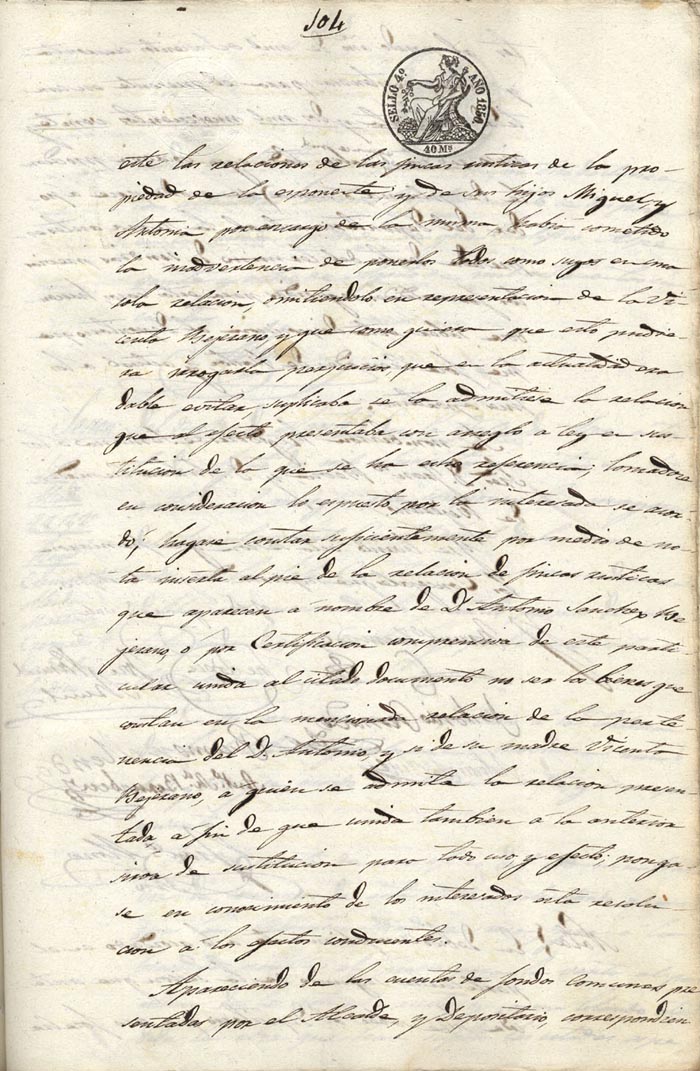 104
SELLO 4º AÑO 1860
40 Ms
este las relaciones de las fincas rusticas de la pro-
piedad de la esponente, y de sus hijos Miguel y
Antonia por encargo de la misma habia cometido
la inadvertencia de ponerlos todos como suyos en una
sola relacion, omitiendolo en representacion de la Vi-
centa Bejerano y que como quiera que esto pudie-
ra irrogarla perjuicios, que en la actualidad era
dable evitar, suplicaba se la admitiese la relacion
que al efecto presentaba con arreglo a ley en sus-
titucion de la que se ha echo referencia; tomadose
en consideracion lo espuesto por la interesada se acor-
dó; hagase constar suficientemente por medio de no-
ta inserta al pie de la relacion de fincas rusticas
que aparecen a nombre de D. Antonio Sanchez Be-
jerano, o por Certificacion comprensiva de este parti-
cular unida al citado documento no ser los bienes que
constan en la mencionada relacion de la perte-
nencia del D. Antonio, y si de su madre Vicenta
Bejerano, a quien se admita la relacion presen-
tada, a fin de que unida tambien a la anterior
sirva de sustitucion para todo uso y efecto; ponga-
se en conocimiento de los interesados esta resolu-
cion a los efectos conducentes.
Apareciendo de las cuentas de fondos comunes pre
sentadas por el Alcalde, y Depositario, correspondien